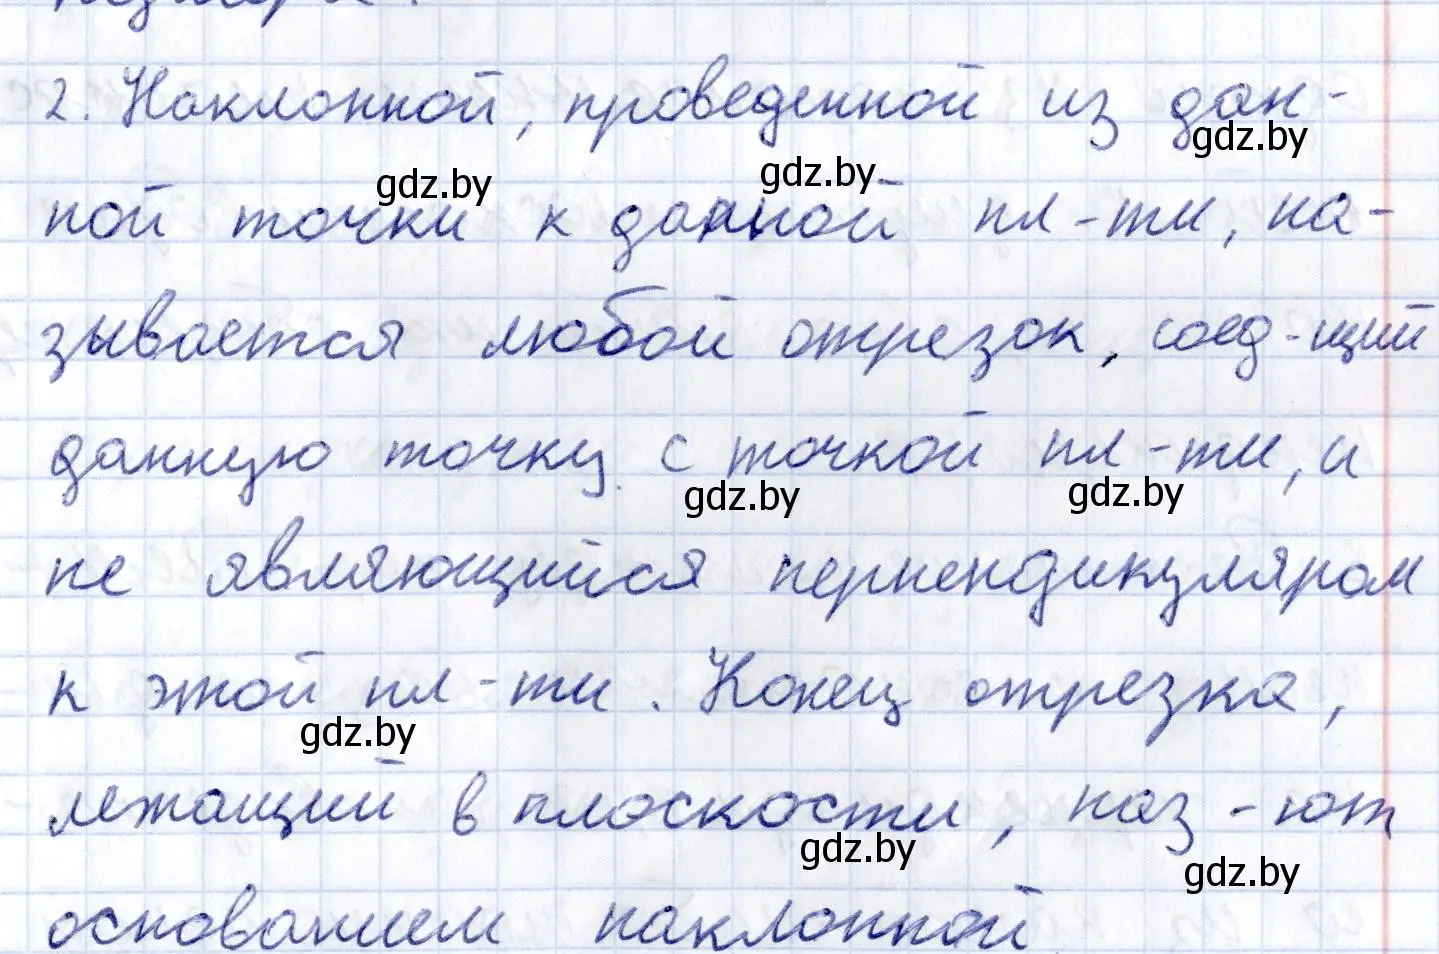 2. Наклонной, проведенной из дан-
ной точки к данной пл-ти, на-
зывается любой отрезок, соед-щий
данную точку с точкой пл-ти, и
не являющийся перпендикуляром
к этой пл-ти. Конец отрезка,
лежащий в плоскости, наз-ют
основанием наклонной
gdz.by
gdz.by
gdz.by
gdz.by
gdz.by
gdz.by
gdz.by
gdz.by